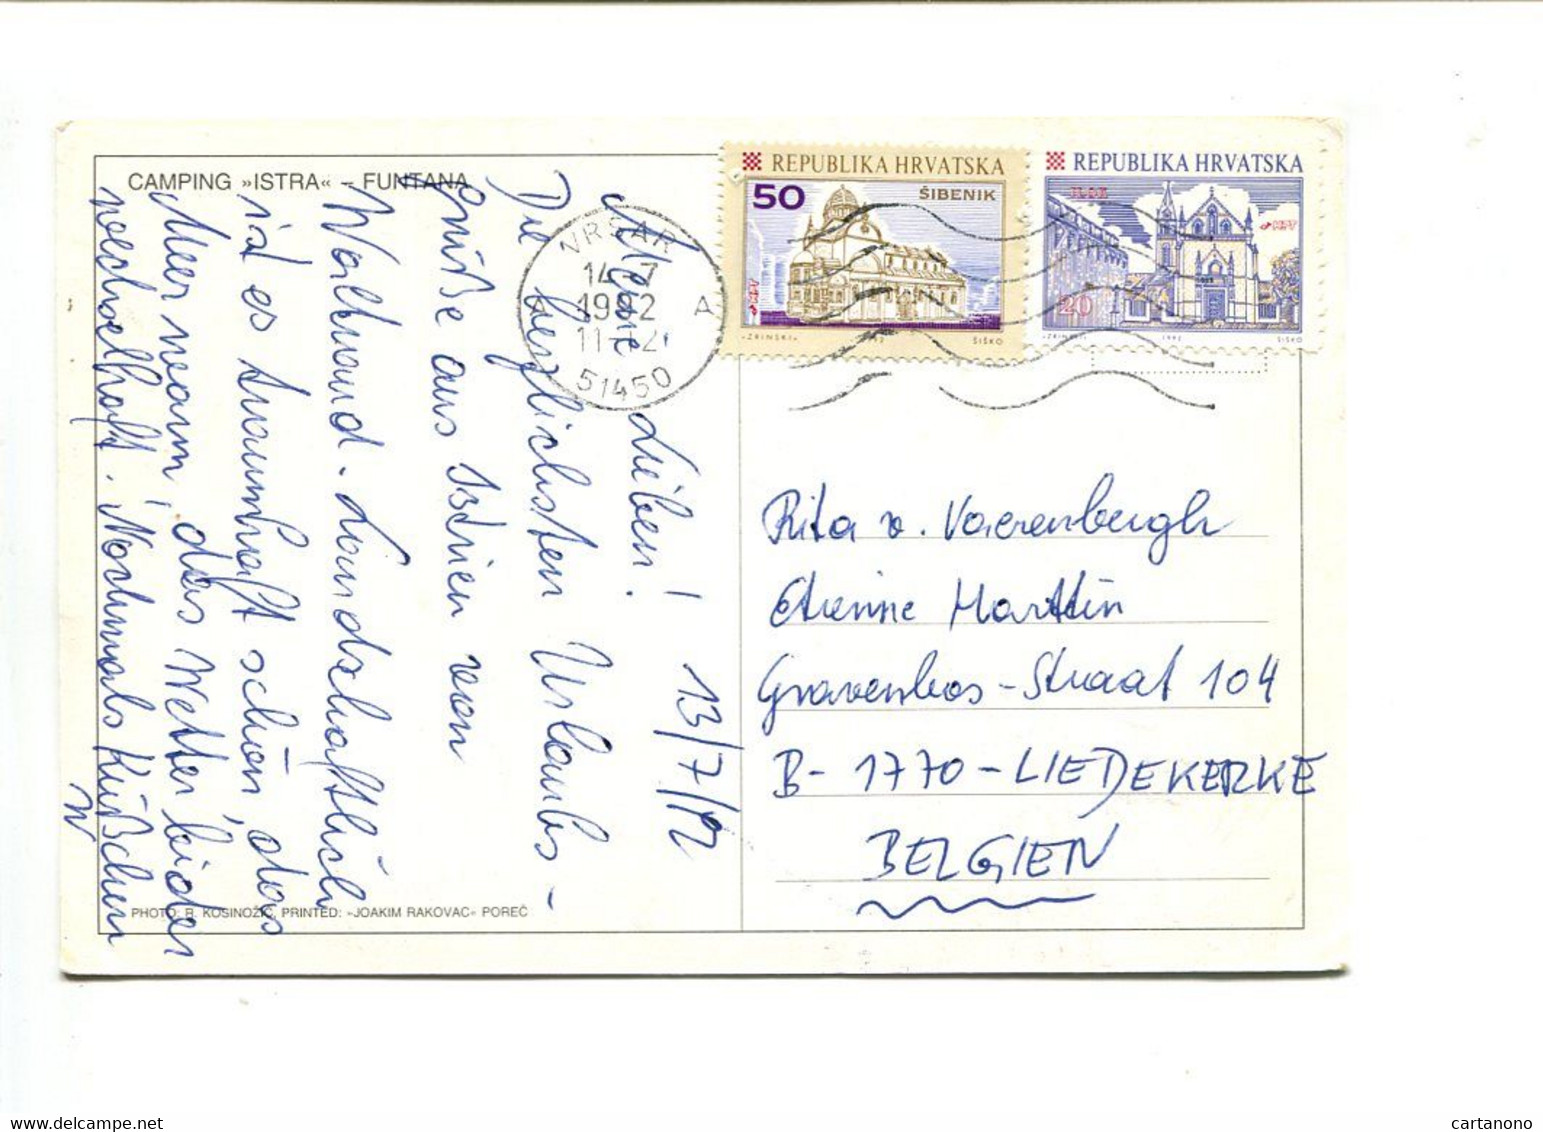 CAMPING »ISTRA« – FUNTANA
Meine Lieben! 13/7/92
Die herzlichsten Urlaubs-
grüße aus Istrien von
Waltraud. Landschaftlich
ist es traumhaft schön, das
Meer warm, das Wetter leider
wechselhaft. Nochmals Küßchen
W
PHOTO: R. KOSINOŽIĆ, PRINTED: »JOAKIM RAKOVAC« POREČ
VRSAR
14-7
1992
A A
51450
REPUBLIKA HRVATSKA
50 ŠIBENIK
HPT
»ZRINSKI« ŠIŠKO
REPUBLIKA HRVATSKA
ILOK
HPT
20
»ZRINSKI« 1992 ŠIŠKO
Rita v. Vaerenbergh
Etienne Marttin
Gravenbos-Straat 104
B-1770-LIEDEKERKE
BELGIEN
cartanono